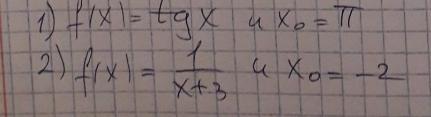 1) f(x) = tg x и x₀ = π
2) f(x) = 1/(x+3) и x₀ = -2